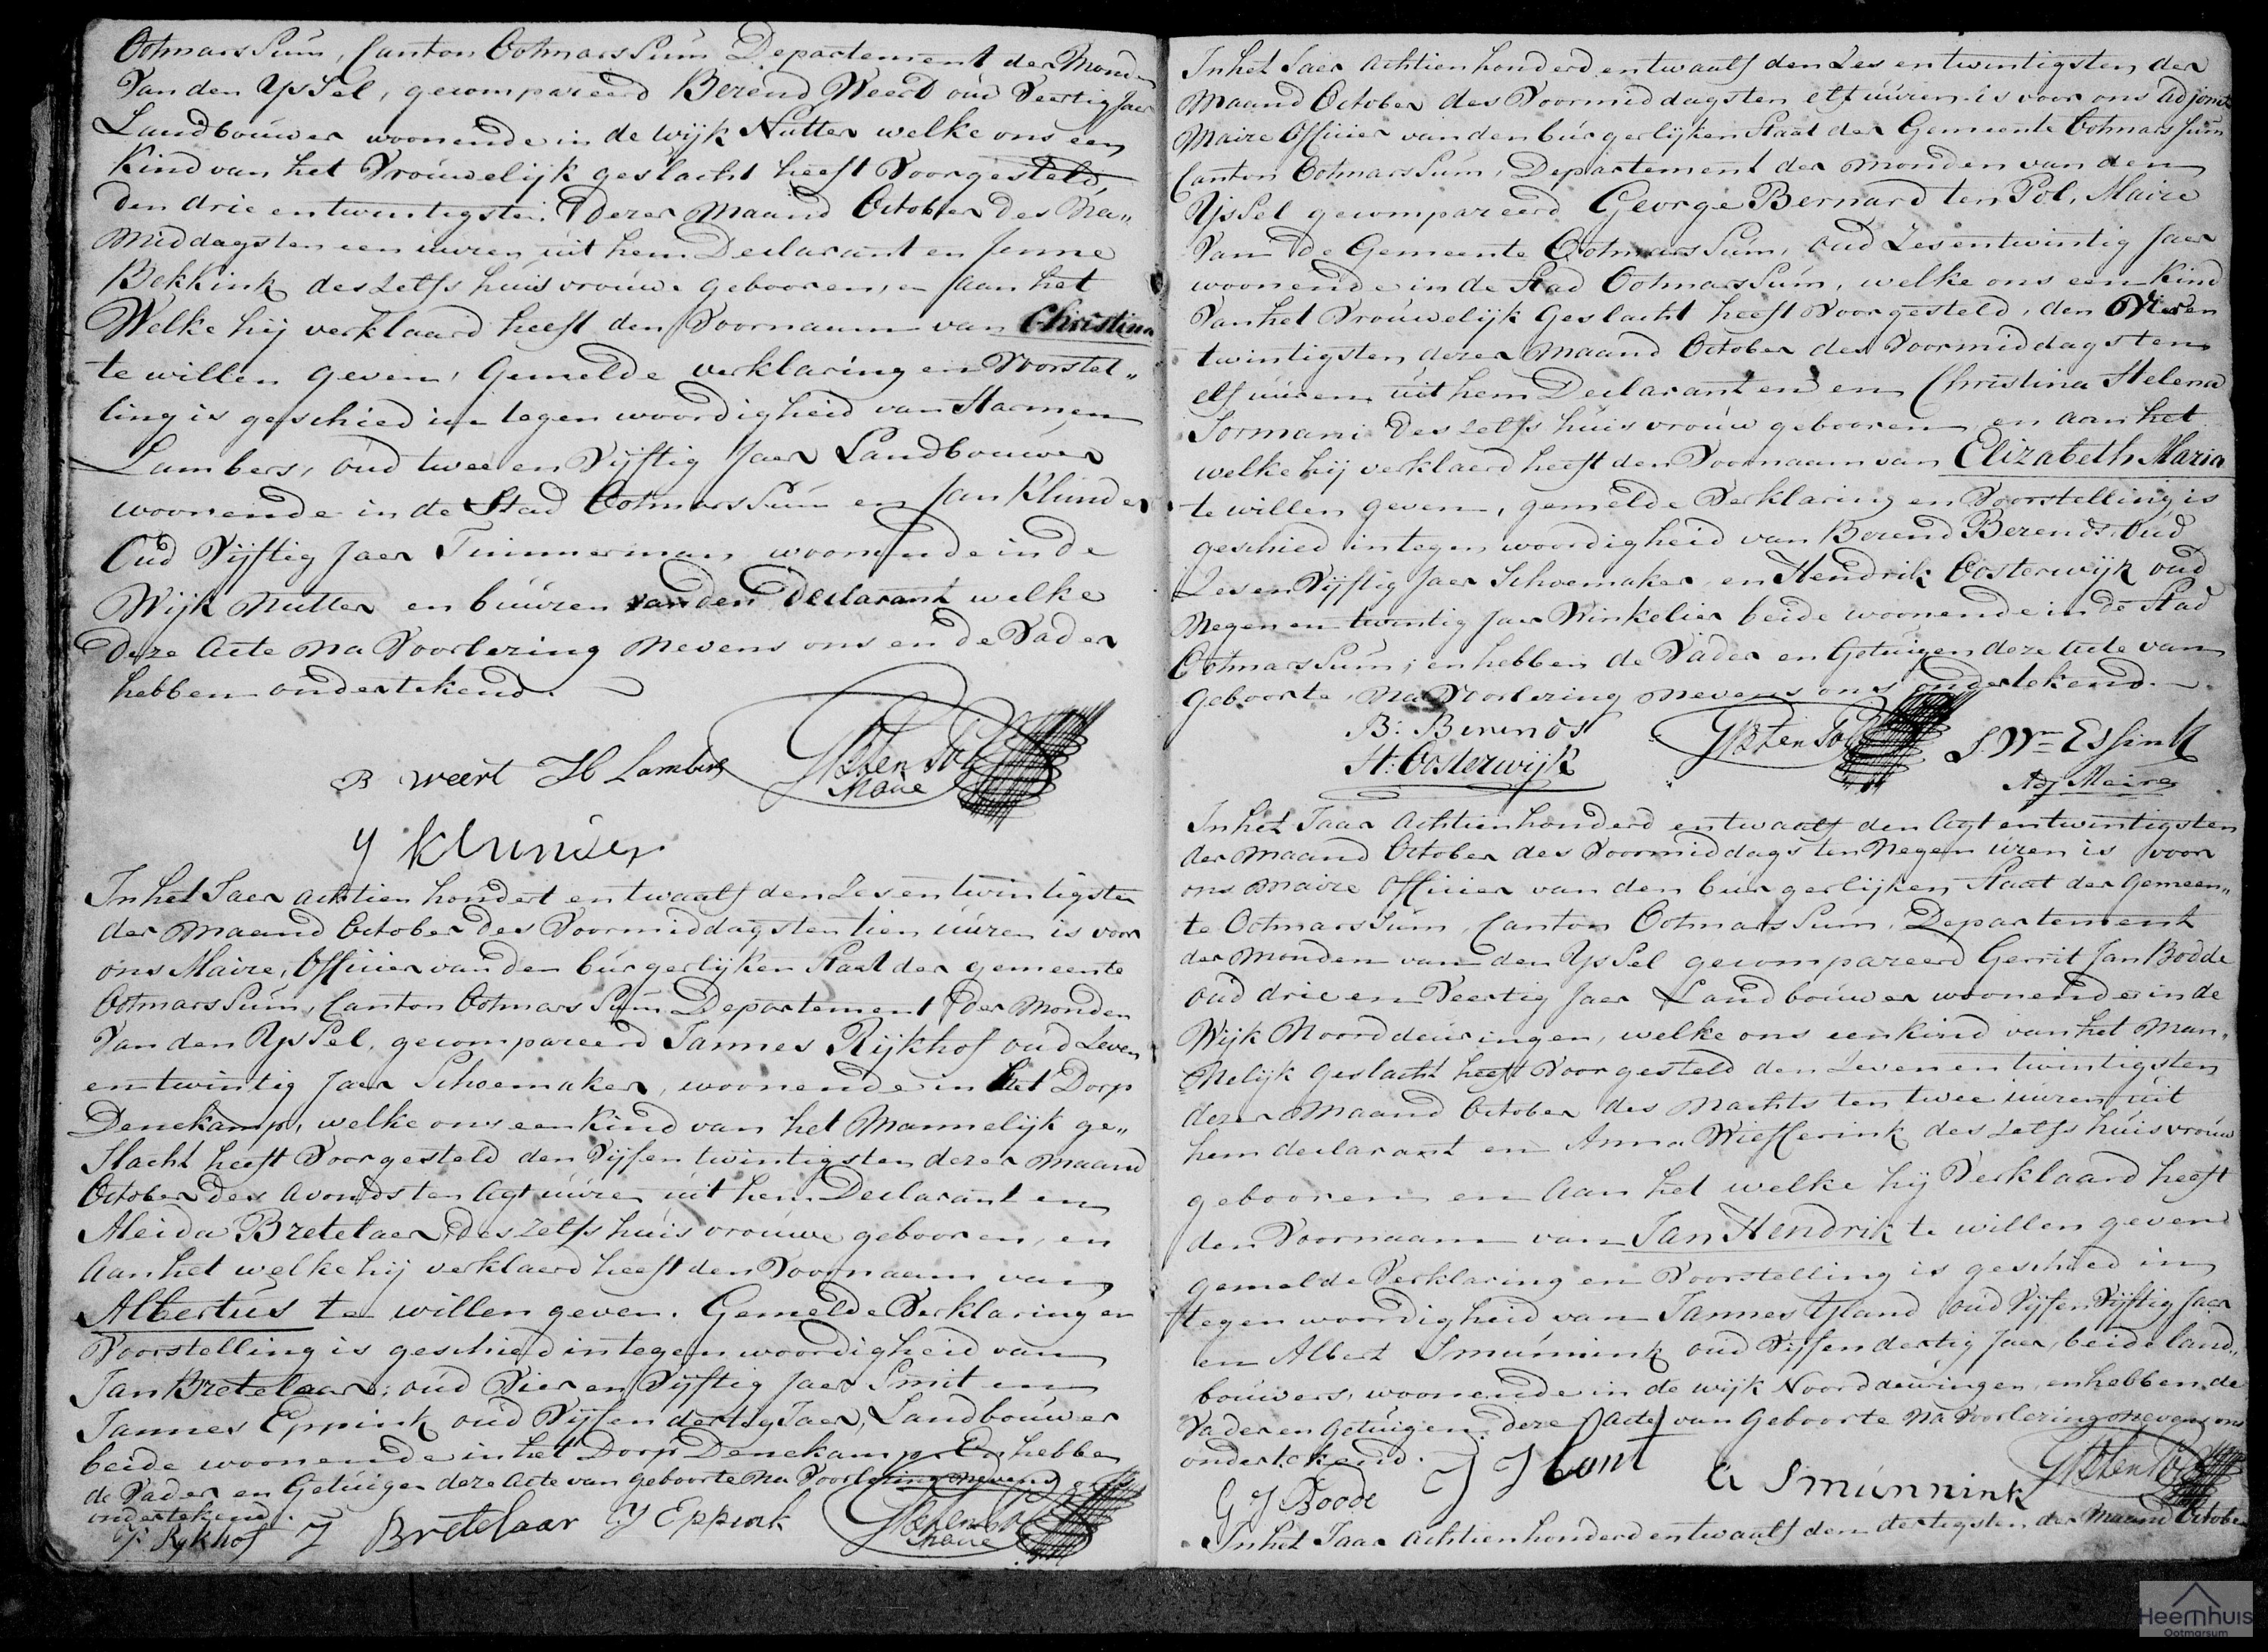 OotmarsSum, Canton OotmarsSum Departement der Monden
Van den YsSel, gecompareerd Berend Weert oud Veertig Jaer
Landbouwer woonende in de wijk Nutter welke ons een
Kind van het Vrouwelijk geslacht heeft Voorgesteld,
den drie en twintigsten dezer Maand October des Na„
Middags ten een uuren uit hem Declarant en Jenne
Bekkink deszelfs huisvrouw gebooren, en aan het
Welke hij verklaard heeft den Voornaam van Christina
te willen geven, Gemelde verklaring en Voorstel„
ling is geschied in tegenwoordigheid van Harmen
Lambers, oud twee en Vijftig Jaer Landbouwer
woonende in de Stad OotmarsSum en Jan Klunder
Oud Vijftig Jaer Timmerman woonende in de
Wijk Nutter en buuren van den Declarant welke
deze Acte na Voorlezing Nevens ons en de Vader
hebben ondertekend.
B weert H Lambers GB ten Pol
Maire
J Klunder
In het Jaer achtien hondert en twaalf den Zes en twintigsten
der Maand October des Voormiddags ten tien uuren is voor
ons Maire, Officier van den burgerlijken Staat der gemeente
OotmarsSum, Canton OotmarsSum Departement der Monden
Van den YsSel, gecompareerd Jannes Rijkhof oud Zeven
en twintig Jaer Schoemaker, woonende in het Dorp
Denekamp, welke ons een kind van het Mannelijk ge„
slacht heeft Voorgesteld den Vijf en twintigsten dezer Maand
October des avonds ten Agt uuren uit hem Declarant en
Aleida Bretelaer deszelfs huisvrouwe gebooren, en
Aan het welke hij verklaerd heeft den Voornaam van
Albertus te willen geven. Gemelde Verklaring en
Voorstelling is geschied in tegenwoordigheid van
Jan Bretelaar, oud Vier en Vijftig Jaer Smit en
Jannes Eppink oud Vijf en dertig Jaer, Landbouwer
beide woonende in het Dorp Denekamp En hebben
de Vader en Getuigen deze Acte van geboorte Na Voorlezing nevens ons
ondertekend.
J: Rykhof J Bretelaar J Eppink GB ten Pol
Maire
In het Jaer achtien honderd en twaalf den Zes en twintigsten der
Maand October des Voormiddags ten elf uuren is voor ons Adjonct
Maire Officier van den burgerlijken Staat der Gemeente OotmarsSum
Canton OotmarsSum, Departement der monden van den
YsSel gecompareerd George Bernard ten Pol, Maire
Van de Gemeente OotmarsSum, oud Zes en twintig Jaer
woonende in de Stad OotmarsSum, welke ons een Kind
Van het Vrouwelijk Geslacht heeft Voorgesteld, den Vier en
twintigsten dezer Maand October des Voormiddags ten
elf uuren uit hem Declarant en en Christina Helena
Sormani deszelfs huisvrouw gebooren en aan het
welke hij verklaerd heeft den Voornaam van Elizabeth Maria
te willen geven, gemelde Verklaring en Voorstelling is
geschied in tegenwoordigheid van Berend Berends Oud
Zes en Vijftig Jaer Schoemaker, en Hendrik Oosterwijk oud
Negen en twintig Jaer Winkelier beide woonende in de Stad
OotmarsSum; en hebben de Vader en Getuigen deze Acte van
Geboorte, Na Voorlezing nevens ons ondertekend.
B: Berends GB ten Pol S Wm Essink
H: Oosterwijk Adj Maire
In het Jaar achtien honderd en twaalf den Agt en twintigsten
der Maand October des Voormiddags ten Negen uren is voor
ons Maire Officier van den burgerlijken Staat der Gemeen„
te OotmarsSum, Canton OotmarsSum, Departement
der Monden van den YsSel gecompareerd Gerrit Jan Bodde
oud drie en Veertig Jaer Landbouwer woonende in de
Wijk Noorddeuringen, welke ons een kind van het Man„
Nelijk geslacht heeft Voorgesteld den Zeven en twintigsten
dezer Maand October des Nachts ten twee uuren uit
hem declarant en Anna Wiefferink deszelfs huisvrouw
gebooren en Aan het welke hij Verklaard heeft
den Voornaam van Jan Hendrik te willen geven
gemelde Verklaring en Voorstelling is geschied in
tegenwoordigheid van Jannes Ysland oud Vijf en Vijftig Jaer
en Albert Smunnink oud Vijf en dertig Jaer, beide land„
bouwers, woonende in de wijk Noorddeuringen, en hebben de
Vader en Getuigen deze Acte van Geboorte Na Voorlezing nevens ons
ondertekend.
G J Bodde A Smunnink GB ten Pol
In het Jaar achtien honderd en twaalf den dertigsten der Maand October
Heemhuis
Ootmarsum